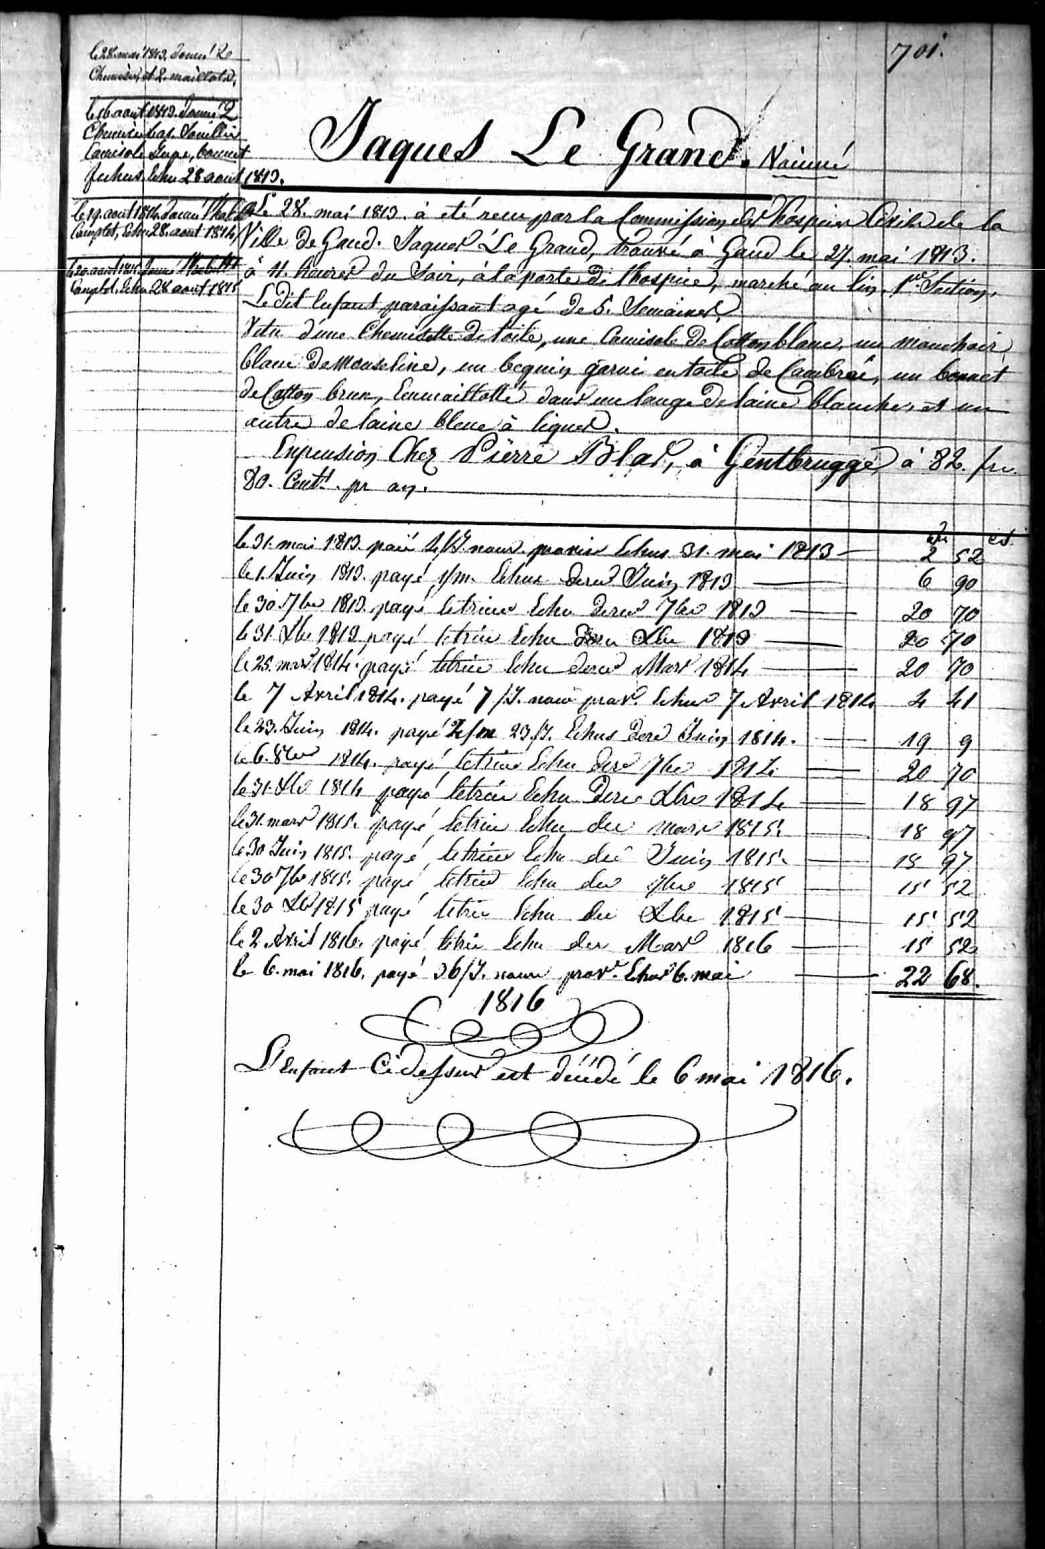 701.
le 28. mai 1813. Donné 2
Chemises et 2. maillots.
le 16 aout 1813. Donné 2
Chemise bas. Souliers
Camisole Jupe, bonnet
fichus. Echu 28 aout 1813.
le 19. aout 1814. Donné l'habt
Complet. Echu 28. aout 1814
le 20 aout 1815. Donné l'habillt
Complet. Echu 28 aout 1815
Jaques Le Grand. Vaciné
Le 28. mai 1813. à eté recu par la Commission des hospices Civils de la
Ville de Gand. Jaques Le Grand, trouvé à Gand le 27. mai 1813.
à 11. heures du Soir, à la porte de l'hospice, marché au lin. 1re Section,
Le dit Enfant paraissant agé de 5. Semaines,
Vetu d'une Chemisette de toile, une Camisole de Cotton blanc, un mouchoir
blanc de Mouseline, un beguin garni en toile de Cambrai, un bonnet
de Cotton brun, Enmaillotté dans un lange de laine blanche, et un
autre de laine bleue à lignes.
Enpension Chez Pierre Blas, à Gentbrugge à 82. frs
80. Cents. pr an.
frs cs
le 31. mai 1813. paié 4/J. nour. provis Echus 31. mai 1813 — 2 52
le 1. Juin 1813. payé 1/m. Echus derer Juin 1813 — 6 90
le 30. 7bre 1813. payé letrime Echu derer 7bre 1813 — 20 70
le 31. Xbre 1813 payé letrim Echu derer Xbre 1813 — 20 70
le 25. mars 1814. payé letrim Echu derer Mars 1814 — 20 70
le 7 Avril 1814. payé 7/J. nour prov. Echus 7 Avril 1814 4 41
le 23. Juin 1814. payé 2/m 23/J. Echus derer Juin 1814. — 19 9
le 6. 8bre 1814. payé letrime Echu derer 7bre 1814 — 20 70
le 31. Xbre 1814 payé letrim Echu derer Xbre 1814 — 18 97
le 31. mars 1815. payé letrim Echu der mars 1815. — 18 97
le 30 Juin 1815. payé letrime Echu der Juin 1815. — 18 97
le 30 7bre 1815. payé letrim Echu der 7bre 1815 — 15 52
le 30 Xbre 1815 payé letrim Echu der Xbre 1815 — 15 52
le 2 Avril 1816. payé letrim Echu der Mars 1816 — 15 52
le 6. mai 1816. payé 36/J. nour prov. Echus 6. mai — 22 68.
1816
L'Enfant Cidessus est décédé le 6 mai 1816.